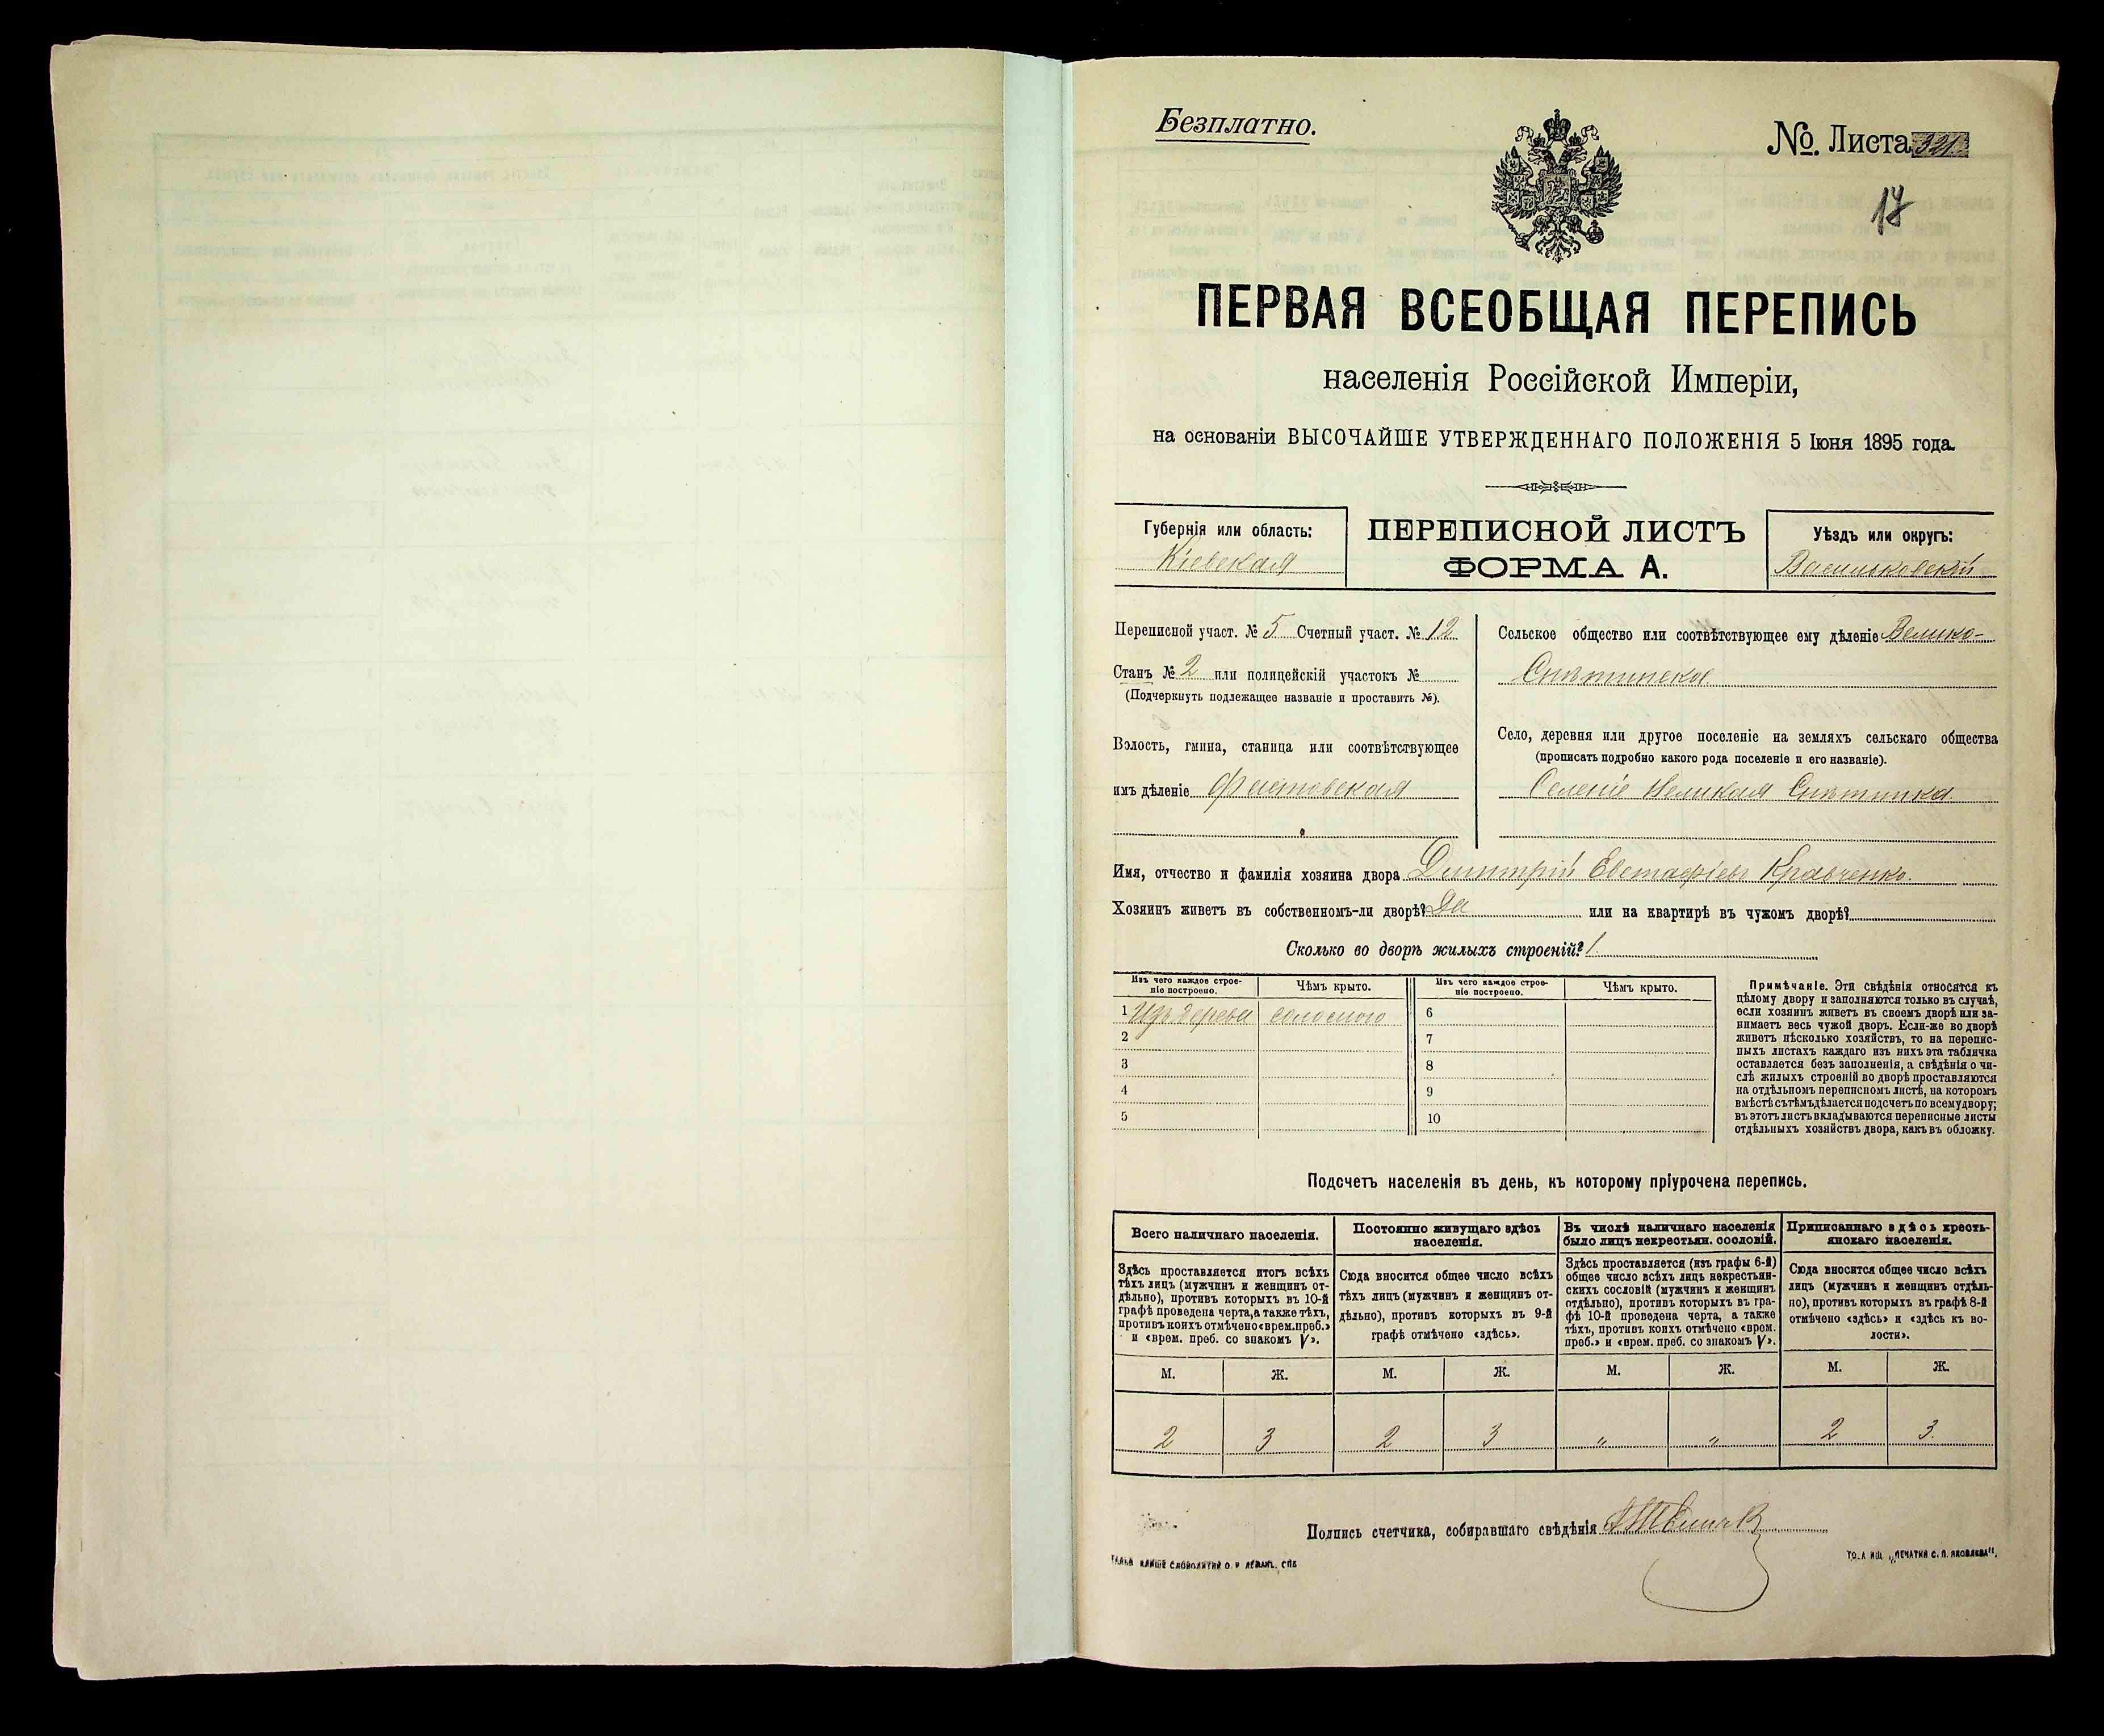 Безплатно.
№. Листа 321
17
ПЕРВАЯ ВСЕОБЩАЯ ПЕРЕПИСЬ
населенія Россійской Имперіи,
на основаніи ВЫСОЧАЙШЕ УТВЕРЖДЕННАГО ПОЛОЖЕНІЯ 5 Іюня 1895 года.
Губернія или область:
Кіевская
ПЕРЕПИСНОЙ ЛИСТЪ
ФОРМА А.
Уѣздъ или округъ:
Васильковскій
Переписной участ. № 5 Счетный участ. № 12
Станъ № 2 или полицейскій участокъ №
(Подчеркнуть подлежащее названіе и проставить №).
Волость, гмина, станица или соотвѣтствующее
имъ дѣленіе Фастовская
Сельское общество или соотвѣтствующее ему дѣленіе Велико-
Снѣтинское
Село, деревня или другое поселеніе на земляхъ сельскаго общества
(прописать подробно какого рода поселеніе и его названіе).
Селеніе Великая Снѣтинка
Имя, отчество и фамилія хозяина двора Димитрій Евстафіевъ Кравченко.
Хозяинъ живетъ въ собственномъ-ли дворѣ? Да или на квартирѣ въ чужомъ дворѣ?
Сколько во дворѣ жилыхъ строеній? 1
Изъ чего каждое строе-
ніе построено.
Чѣмъ крыто.
Изъ чего каждое строе-
ніе построено.
Чѣмъ крыто.
1 Изъ дерева соломою 6
2 7
3 8
4 9
5 10
Примѣчаніе. Эти свѣдѣнія относятся къ
цѣлому двору и заполняются только въ случаѣ,
если хозяинъ живетъ въ своемъ дворѣ или за-
нимаетъ весь чужой дворъ. Если-же во дворѣ
живетъ нѣсколько хозяйствъ, то на перепис-
ныхъ листахъ каждаго изъ нихъ эта табличка
оставляется безъ заполненія, а свѣдѣнія о чи-
слѣ жилыхъ строеній во дворѣ проставляются
на отдѣльномъ переписномъ листѣ, на которомъ
вмѣстѣ съ тѣмъ дѣлается подсчетъ по всему двору;
въ этотъ листъ вкладываются переписные листы
отдѣльныхъ хозяйствъ двора, какъ въ обложку.
Подсчетъ населенія въ день, къ которому пріурочена перепись.
Всего наличнаго населенія.
Здѣсь проставляется итогъ всѣхъ
тѣхъ лицъ (мужчинъ и женщинъ от-
дѣльно), противъ которыхъ въ 10-й
графѣ проведена черта, а также тѣхъ,
противъ коихъ отмѣчено «врем. преб.»
и «врем. преб. со знакомъ V».
Постоянно живущаго здѣсь
населенія.
Сюда вносится общее число всѣхъ
тѣхъ лицъ (мужчинъ и женщинъ от-
дѣльно), противъ которыхъ въ 9-й
графѣ отмѣчено «здѣсь».
Въ числѣ наличнаго населенія
было лицъ некрестьян. сословій.
Здѣсь проставляется (изъ графы 6-й)
общее число всѣхъ лицъ некрестьян-
скихъ сословій (мужчинъ и женщинъ
отдѣльно), противъ которыхъ въ гра-
фѣ 10-й проведена черта, а также
тѣхъ, противъ коихъ отмѣчено «врем.
преб.» и «врем. преб. со знакомъ V».
Приписаннаго здѣсь кресть-
янскаго населенія.
Сюда вносится общее число всѣхъ
лицъ (мужчинъ и женщинъ отдѣль-
но), противъ которыхъ въ графѣ 8-й
отмѣчено «здѣсь» и «здѣсь къ во-
лости».
М. Ж. М. Ж. М. Ж. М. Ж.
2 3 2 3 „ „ 2 3.
Подпись счетчика, собиравшаго свѣдѣнія